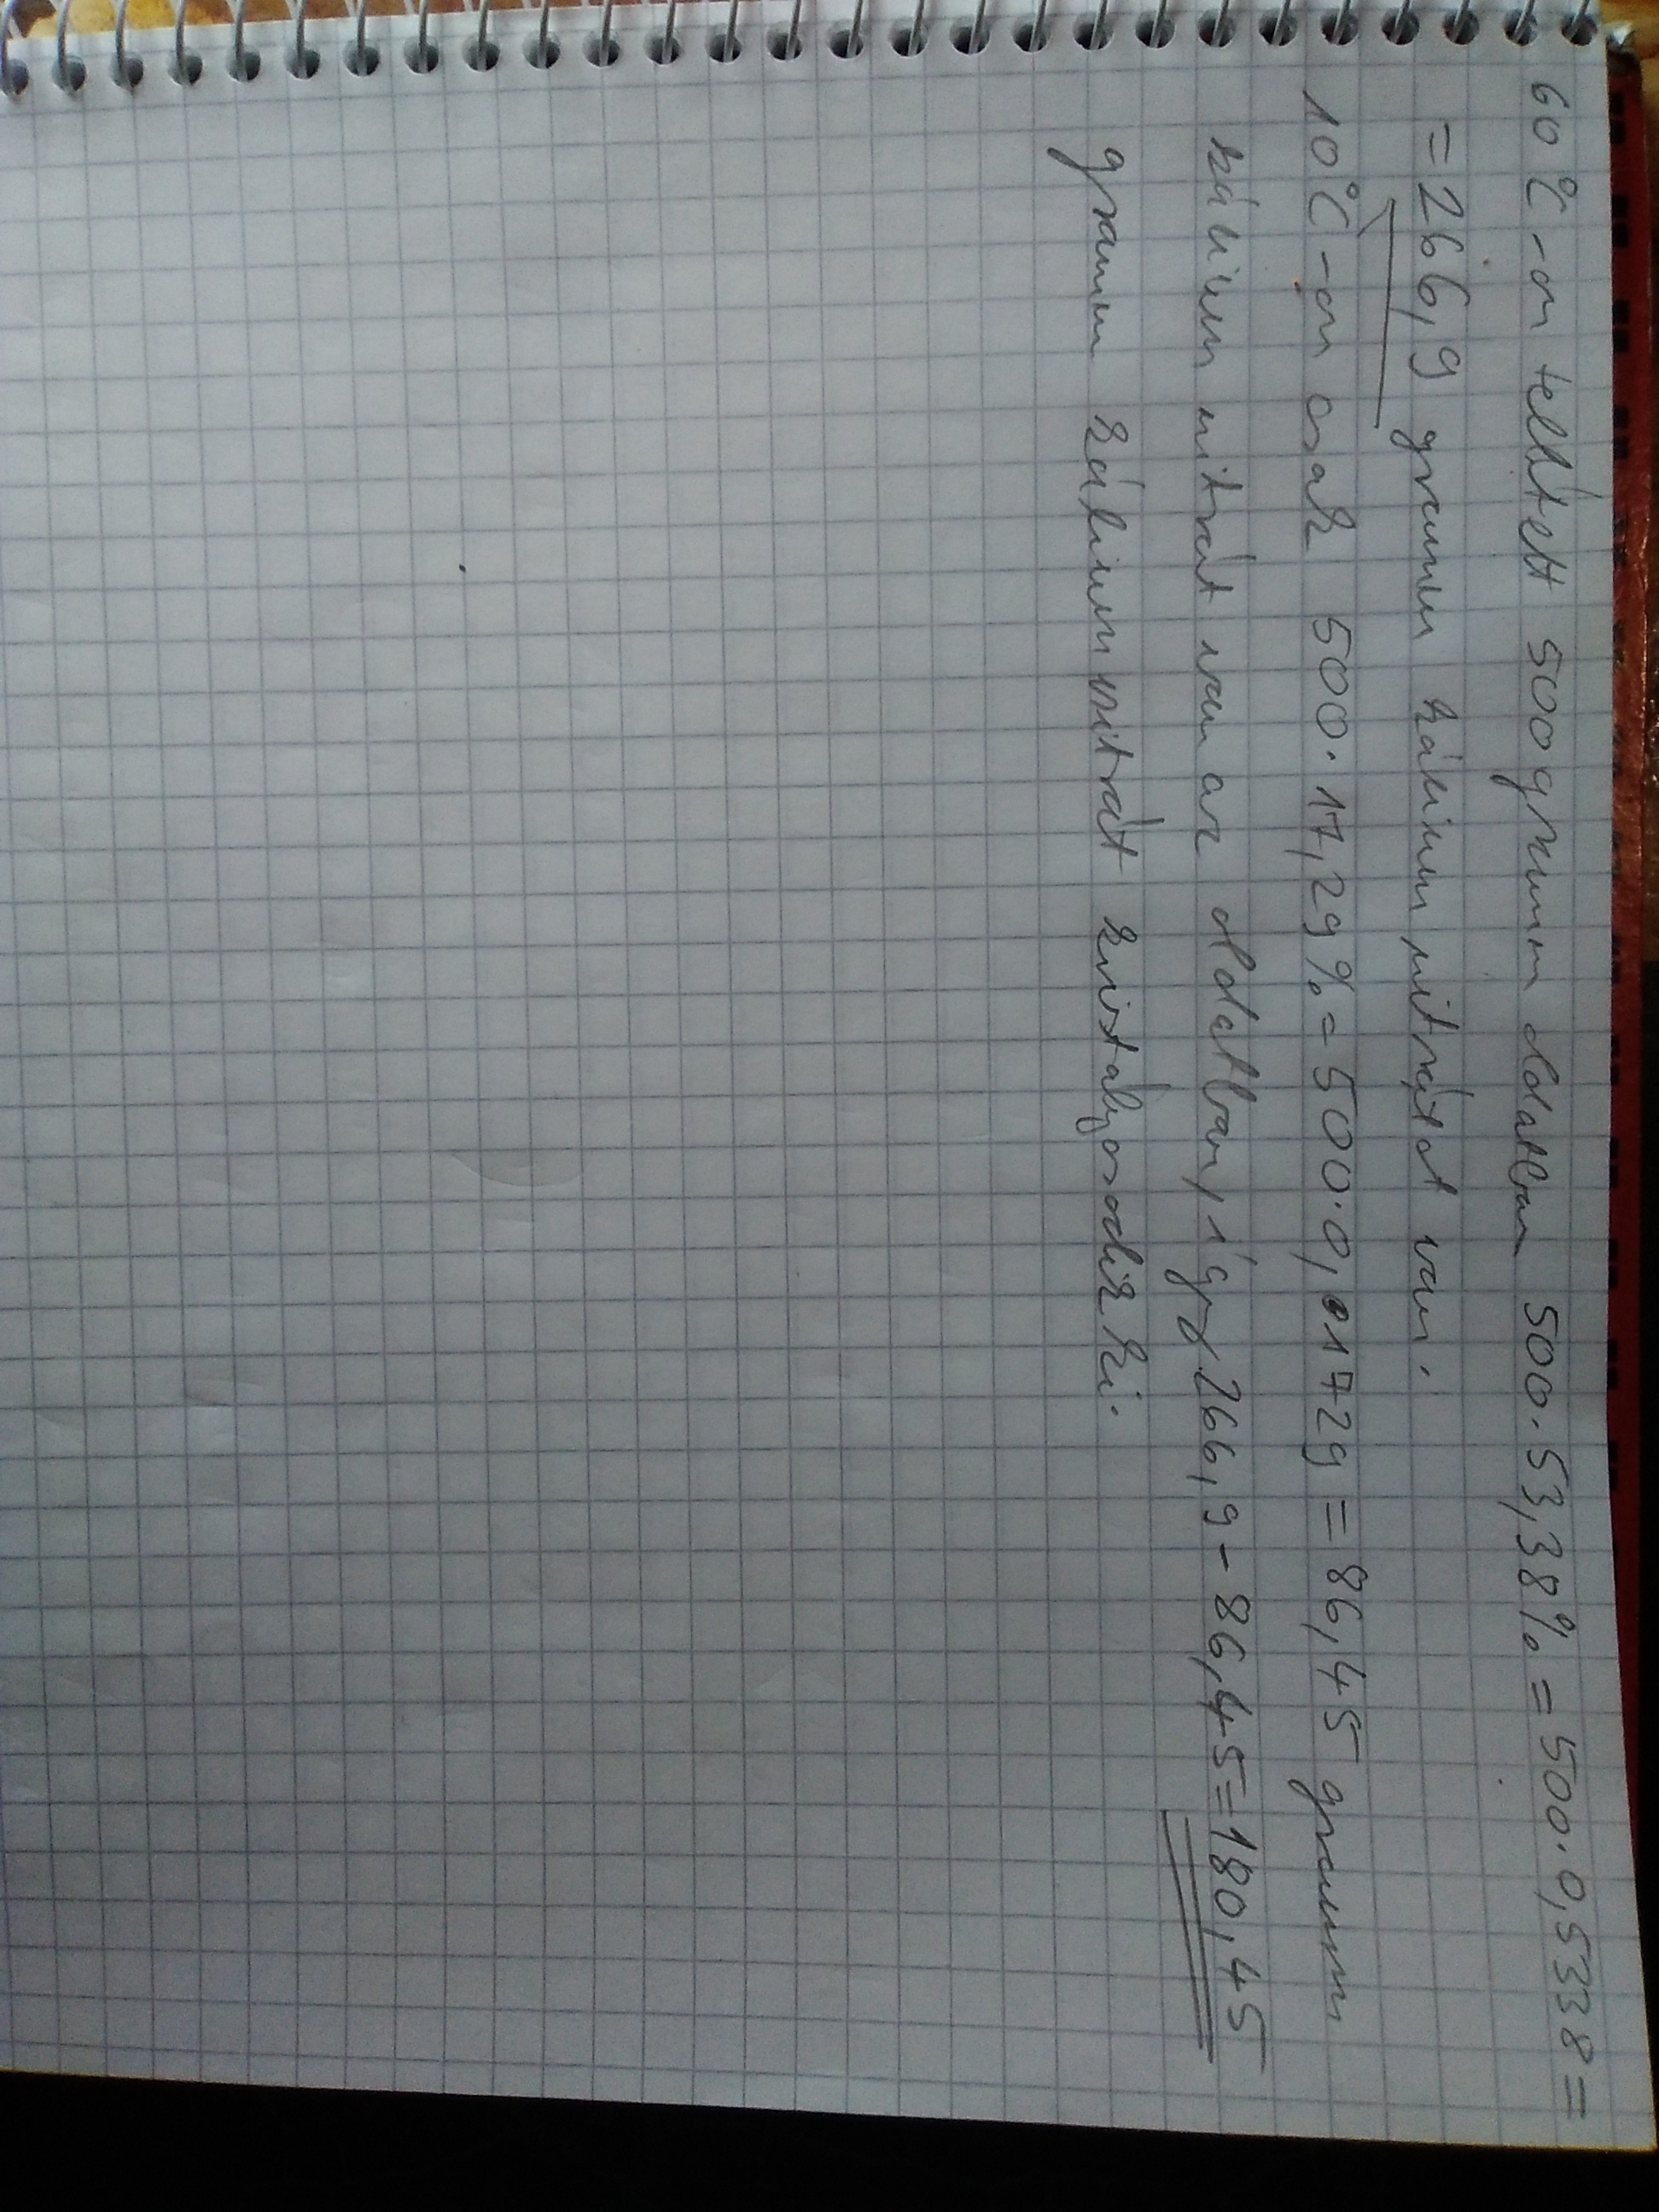 60°C-on telített 500 gramm oldatban 500·53,38% = 500·0,5338 =
= 266,9 gramm kálium nitrátot van.
10°C-on csak 500·17,29% = 500·0,01729 = 86,45 gramm
kálium nitrát van az oldatban, így 266,9 - 86,45 = 180,45
gramm kálium nitrát kristályosodik ki.